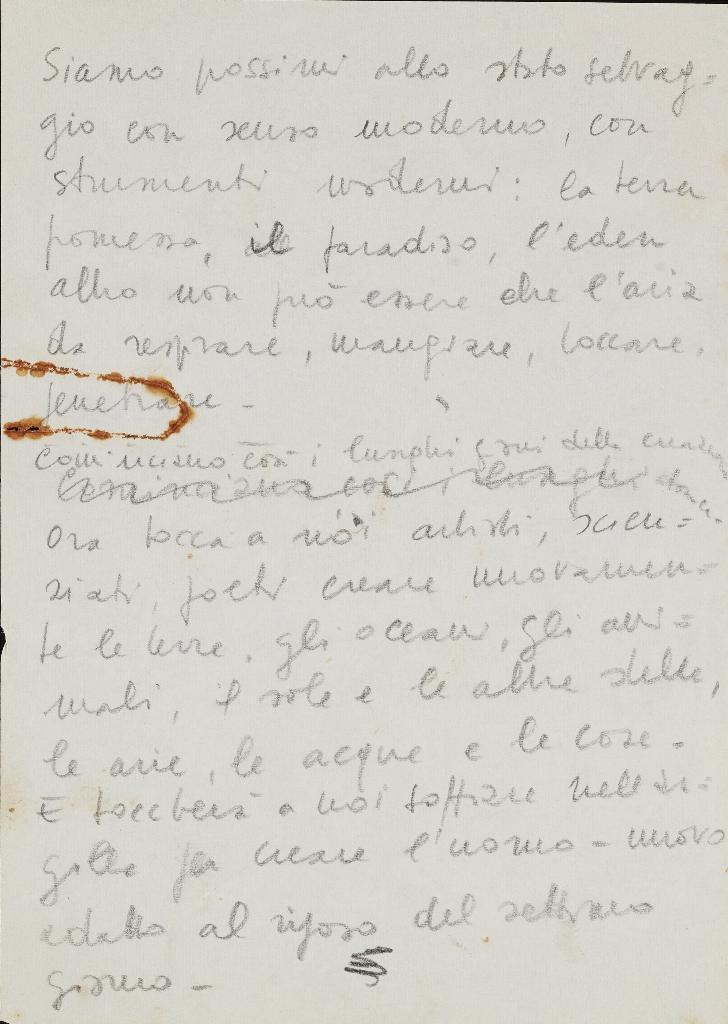 Siamo possimi allo stato selvag=
gio con senso moderno, con
strumenti moderni: la terra
pomessa, il paradiso, l'eden
altro non può essere che l'aria
da respirare, mangiare, toccare,
penetrare –
Cominciamo così i lunghi giorni della creazione
Cominciamo così i lunghi
Ora tocca a noi artisti, scien=
ziati, poeti creare nuovamen=
te le terre, gli oceani, gli ani=
mali, il sole e le altre stelle,
le arie, le acque e le cose.
E toccherà a noi soffiare nell'ar=
gilla per creare l'uomo-nuovo
adatto al riposo del settimo
giorno –